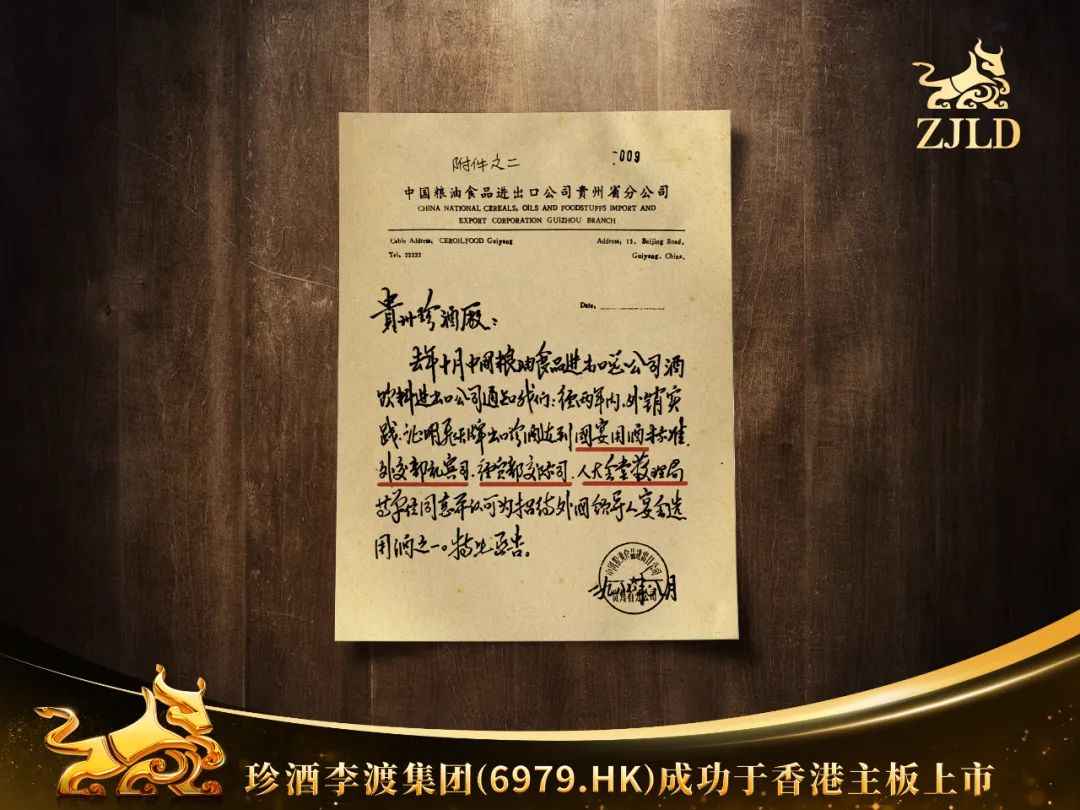 ZJLD
附件之二
009
中国粮油食品进出口公司貴州省分公司
CHINA NATIONAL CEREALS, OILS AND FOODSTUFFS IMPORT AND
EXPORT CORPORATION GUIZHOU BRANCH
Cable Address, CEROILFOOD Guiyang
Tel, 22222
Address, 11, Beijing Road,
Guiyang, China.
Date,
貴州珍酒厰：
去年十月中国粮油食品进出口总公司酒
饮料进出口公司通知我们：经两年内、外销实
践、证明 牌出口珍酒达到国宴用酒标准.
外交部礼宾司、经贸部交际司、人大会堂管理局
等单位同意并认可为招待外国领导人宴会选
用酒之一。特此函告。
一九八 年八月
珍酒李渡集团(6979.HK)成功于香港主板上市